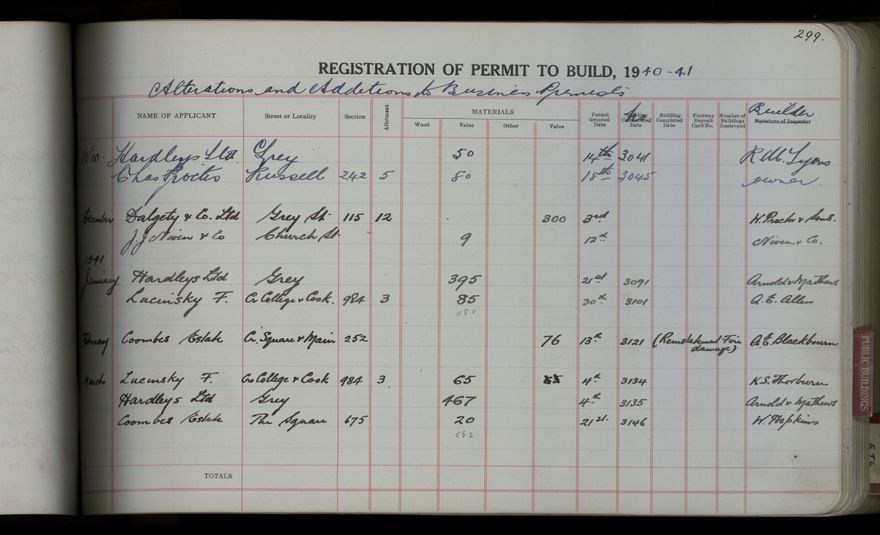 299.
REGISTRATION OF PERMIT TO BUILD, 1940-41
Alterations and Additions to Business Premises
NAME OF APPLICANT Street or Locality Section Allotment MATERIALS Wood Value Other Value Permit Granted Date No. Date Building Completed Date Footway Deposit Card No. Number of Buildings Destroyed Builder Signature of Inspector
Nov. Hardleys Ltd. Grey 50 14th 3041 R.M. Lyons
Chas Procter Russell 242 5 80 18th 3045 owner.
December Dalgety & Co. Ltd Grey St. 115 12 300 3rd W. Procter & Sons.
J.J. Niven & Co Church St. 9 12th Niven & Co.
1941
January Hardleys Ltd Grey 395 21st 3091 Arnold & Mathews
Lucinsky F. Cr College & Cook. 984 3 85 30th 3101 A.E. Allen
February Coombes Estate Cr. Square & Main 252 76 13th 3121 (Reinstatement Fire damage) A.E. Blackbourn
March Lucinsky F. Cr College & Cook 984 3 65 4th 3134 K.S. Thorburn
Hardleys Ltd Grey 467 4th 3135 Arnold & Mathews
Coombes Estate The Square 675 20 21st. 3146 W. Hopkins
552
TOTALS
PUBLIC BUILDINGS